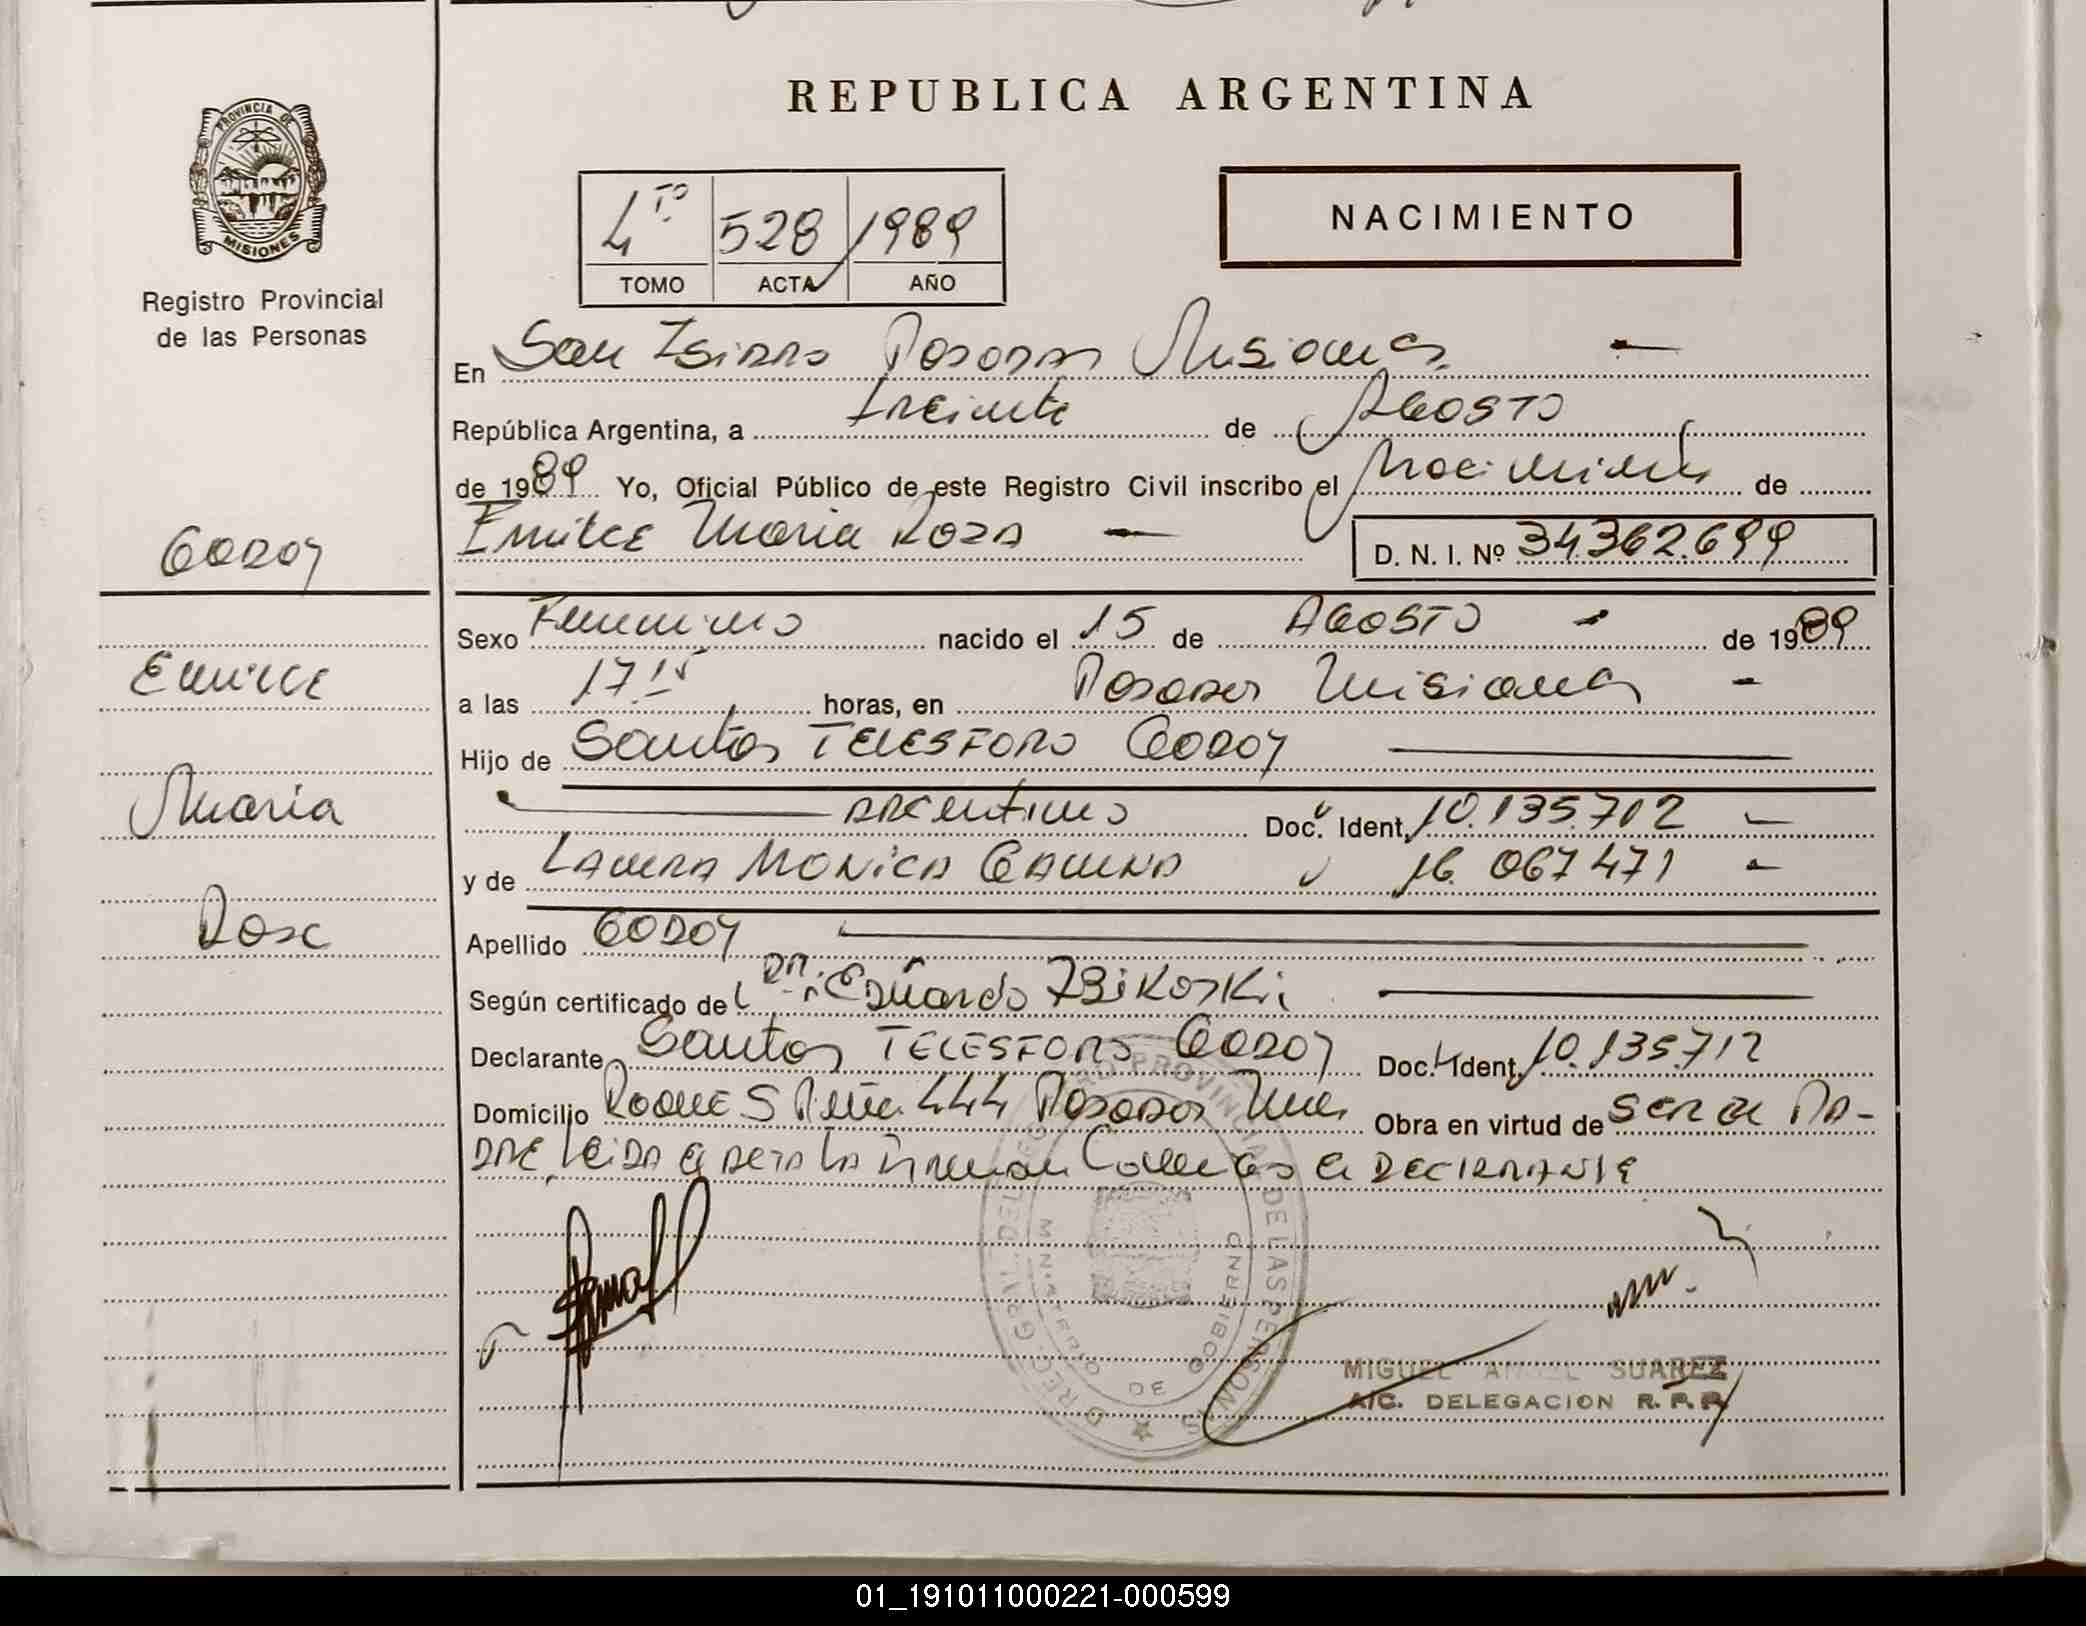 REPUBLICA ARGENTINA
PROVINCIA DE MISIONES
Registro Provincial
de las Personas
4to 528 1989
TOMO ACTA AÑO
NACIMIENTO
En San Isidro Posadas Misiones
República Argentina, a treinta de Agosto
de 1989 Yo, Oficial Público de este Registro Civil inscribo el Nacimiento de
Emilce Maria Rosa D. N. I. Nº 34.362.699
Godoy
Emilce
Maria
Rosa
Sexo Femenino nacido el 15 de Agosto de 1989
a las 17 15 horas, en Posadas Misiones
Hijo de Santos Telesforo Godoy
argentino Doc. Ident. 10.135.712
y de Laura Monica 16.067471
Apellido Godoy
Según certificado de Dr. Eduardo
Declarante Santos Telesforo Godoy Doc. Ident. 10.135.712
Domicilio Roque S Peña 444 Posadas Mnes Obra en virtud de ser el Pa-
dre, leida el acta la firman el declarante
DIRECC. GRAL. DEL REGISTRO PROVINCIAL DE LAS PERSONAS
MINISTERIO DE GOBIERNO
MIGUEL ANGEL SUAREZ
A/C. DELEGACION R. P. P.
01_191011000221-000599